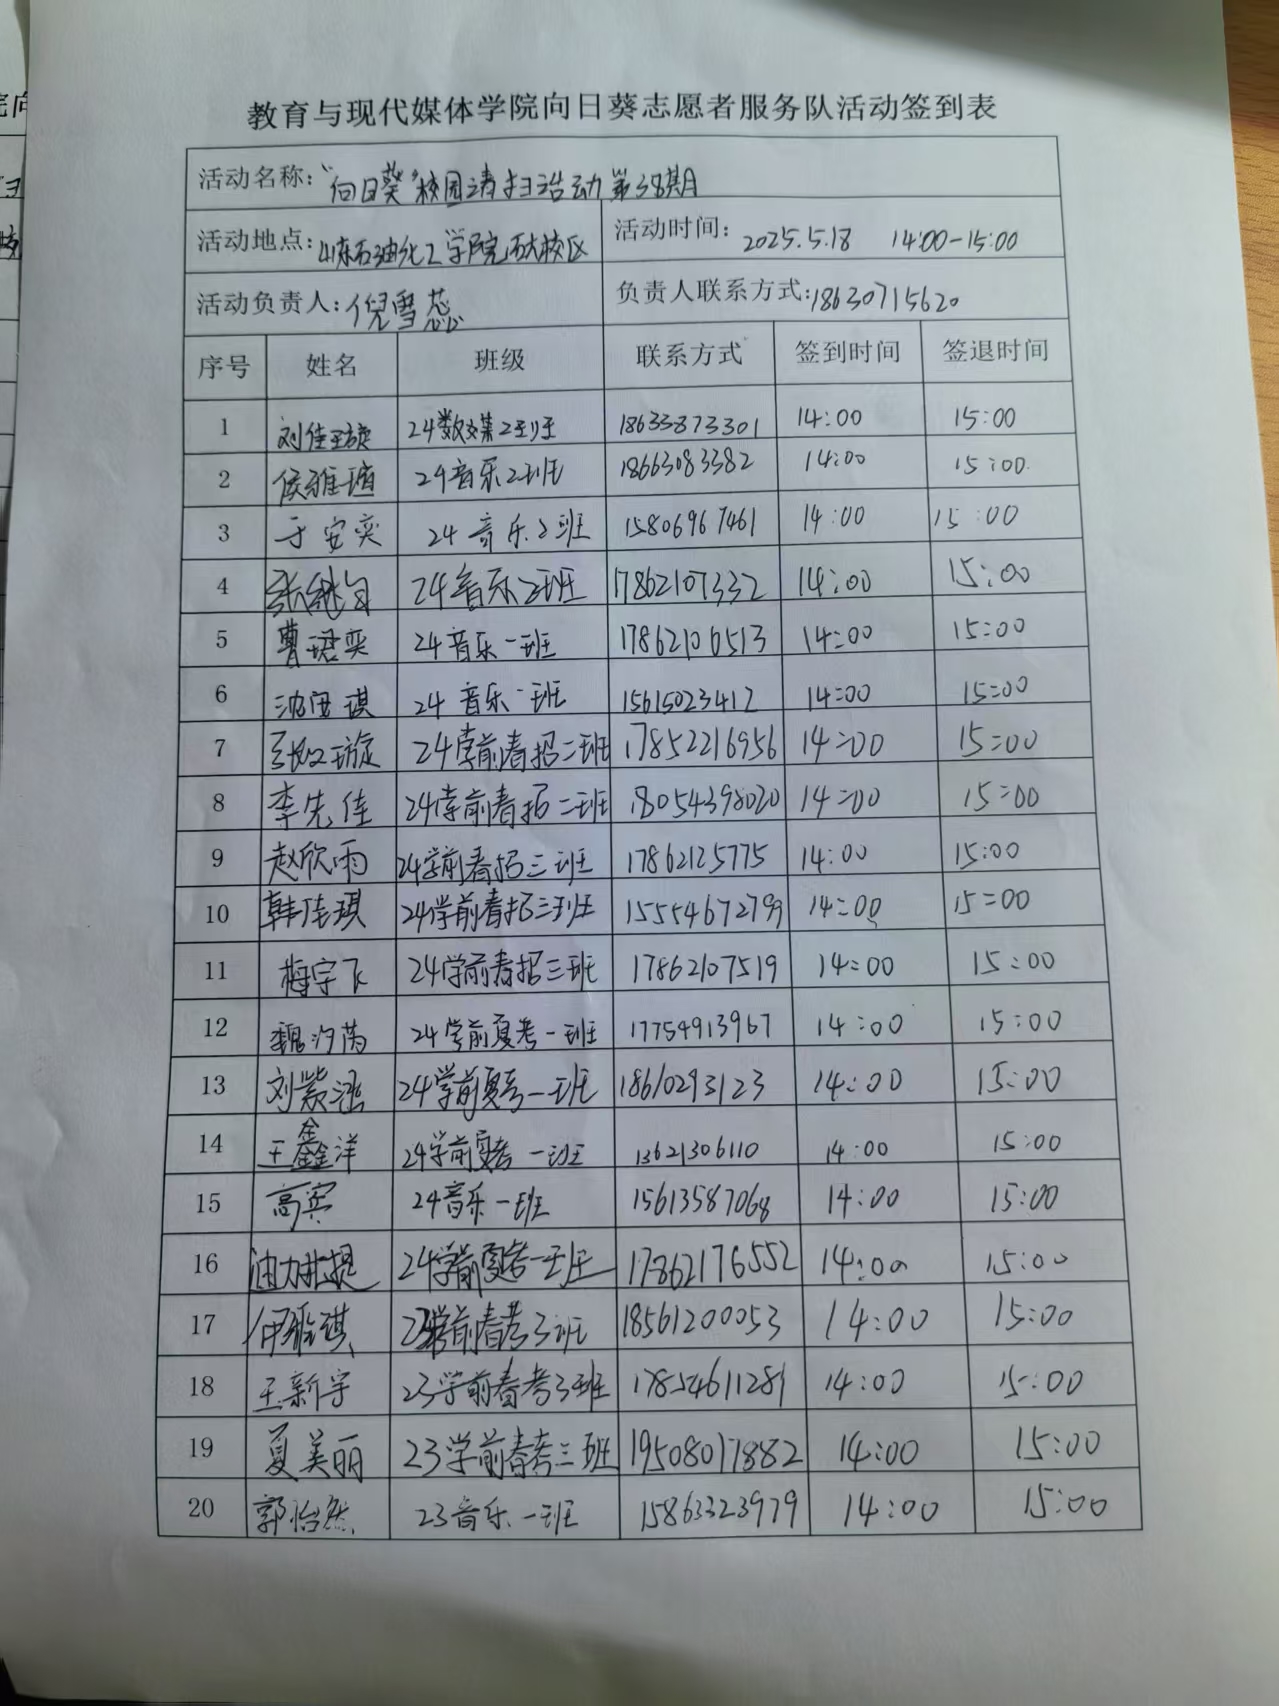 教育与现代媒体学院向日葵志愿者服务队活动签到表
活动名称:“向日葵”校园清扫活动第38期
活动地点:山东石油化工学院西校区 活动时间:2025.5.18 14:00-15:00
活动负责人:倪雪蕊 负责人联系方式:18630715620
序号 姓名 班级 联系方式 签到时间 签退时间
1 刘佳璇 24数媒2班 18633873301 14:00 15:00
2 侯雅瑄 24音乐2班 18663083382 14:00 15:00
3 于安奕 24音乐2班 15806967461 14:00 15:00
4 24音乐2班 17862107332 14:00 15:00
5 曹珺奕 24音乐一班 17862106513 14:00 15:00
6 24音乐一班 15615023412 14:00 15:00
7 24学前春招二班 17852216956 14:00 15:00
8 李先佳 24学前春招二班 18054398020 14:00 15:00
9 赵欣雨 24学前春招三班 17862125775 14:00 15:00
10 韩佳琪 24学前春招三班 15554672799 14:00 15:00
11 梅宇飞 24学前春招三班 17862107519 14:00 15:00
12 魏汐芮 24学前夏考一班 17754913967 14:00 15:00
13 刘紫涵 24学前夏考一班 18610293123 14:00 15:00
14 王鑫洋 24学前夏考一班 13621306110 14:00 15:00
15 高宾 24音乐一班 15613587068 14:00 15:00
16 24学前夏考一班 17862176552 14:00 15:00
17 伊雅琪 23学前春考3班 18561200053 14:00 15:00
18 王新宇 23学前春考3班 17854611281 14:00 15:00
19 夏美丽 23学前春考三班 19508017882 14:00 15:00
20 郭怡然 23音乐一班 15863323979 14:00 15:00